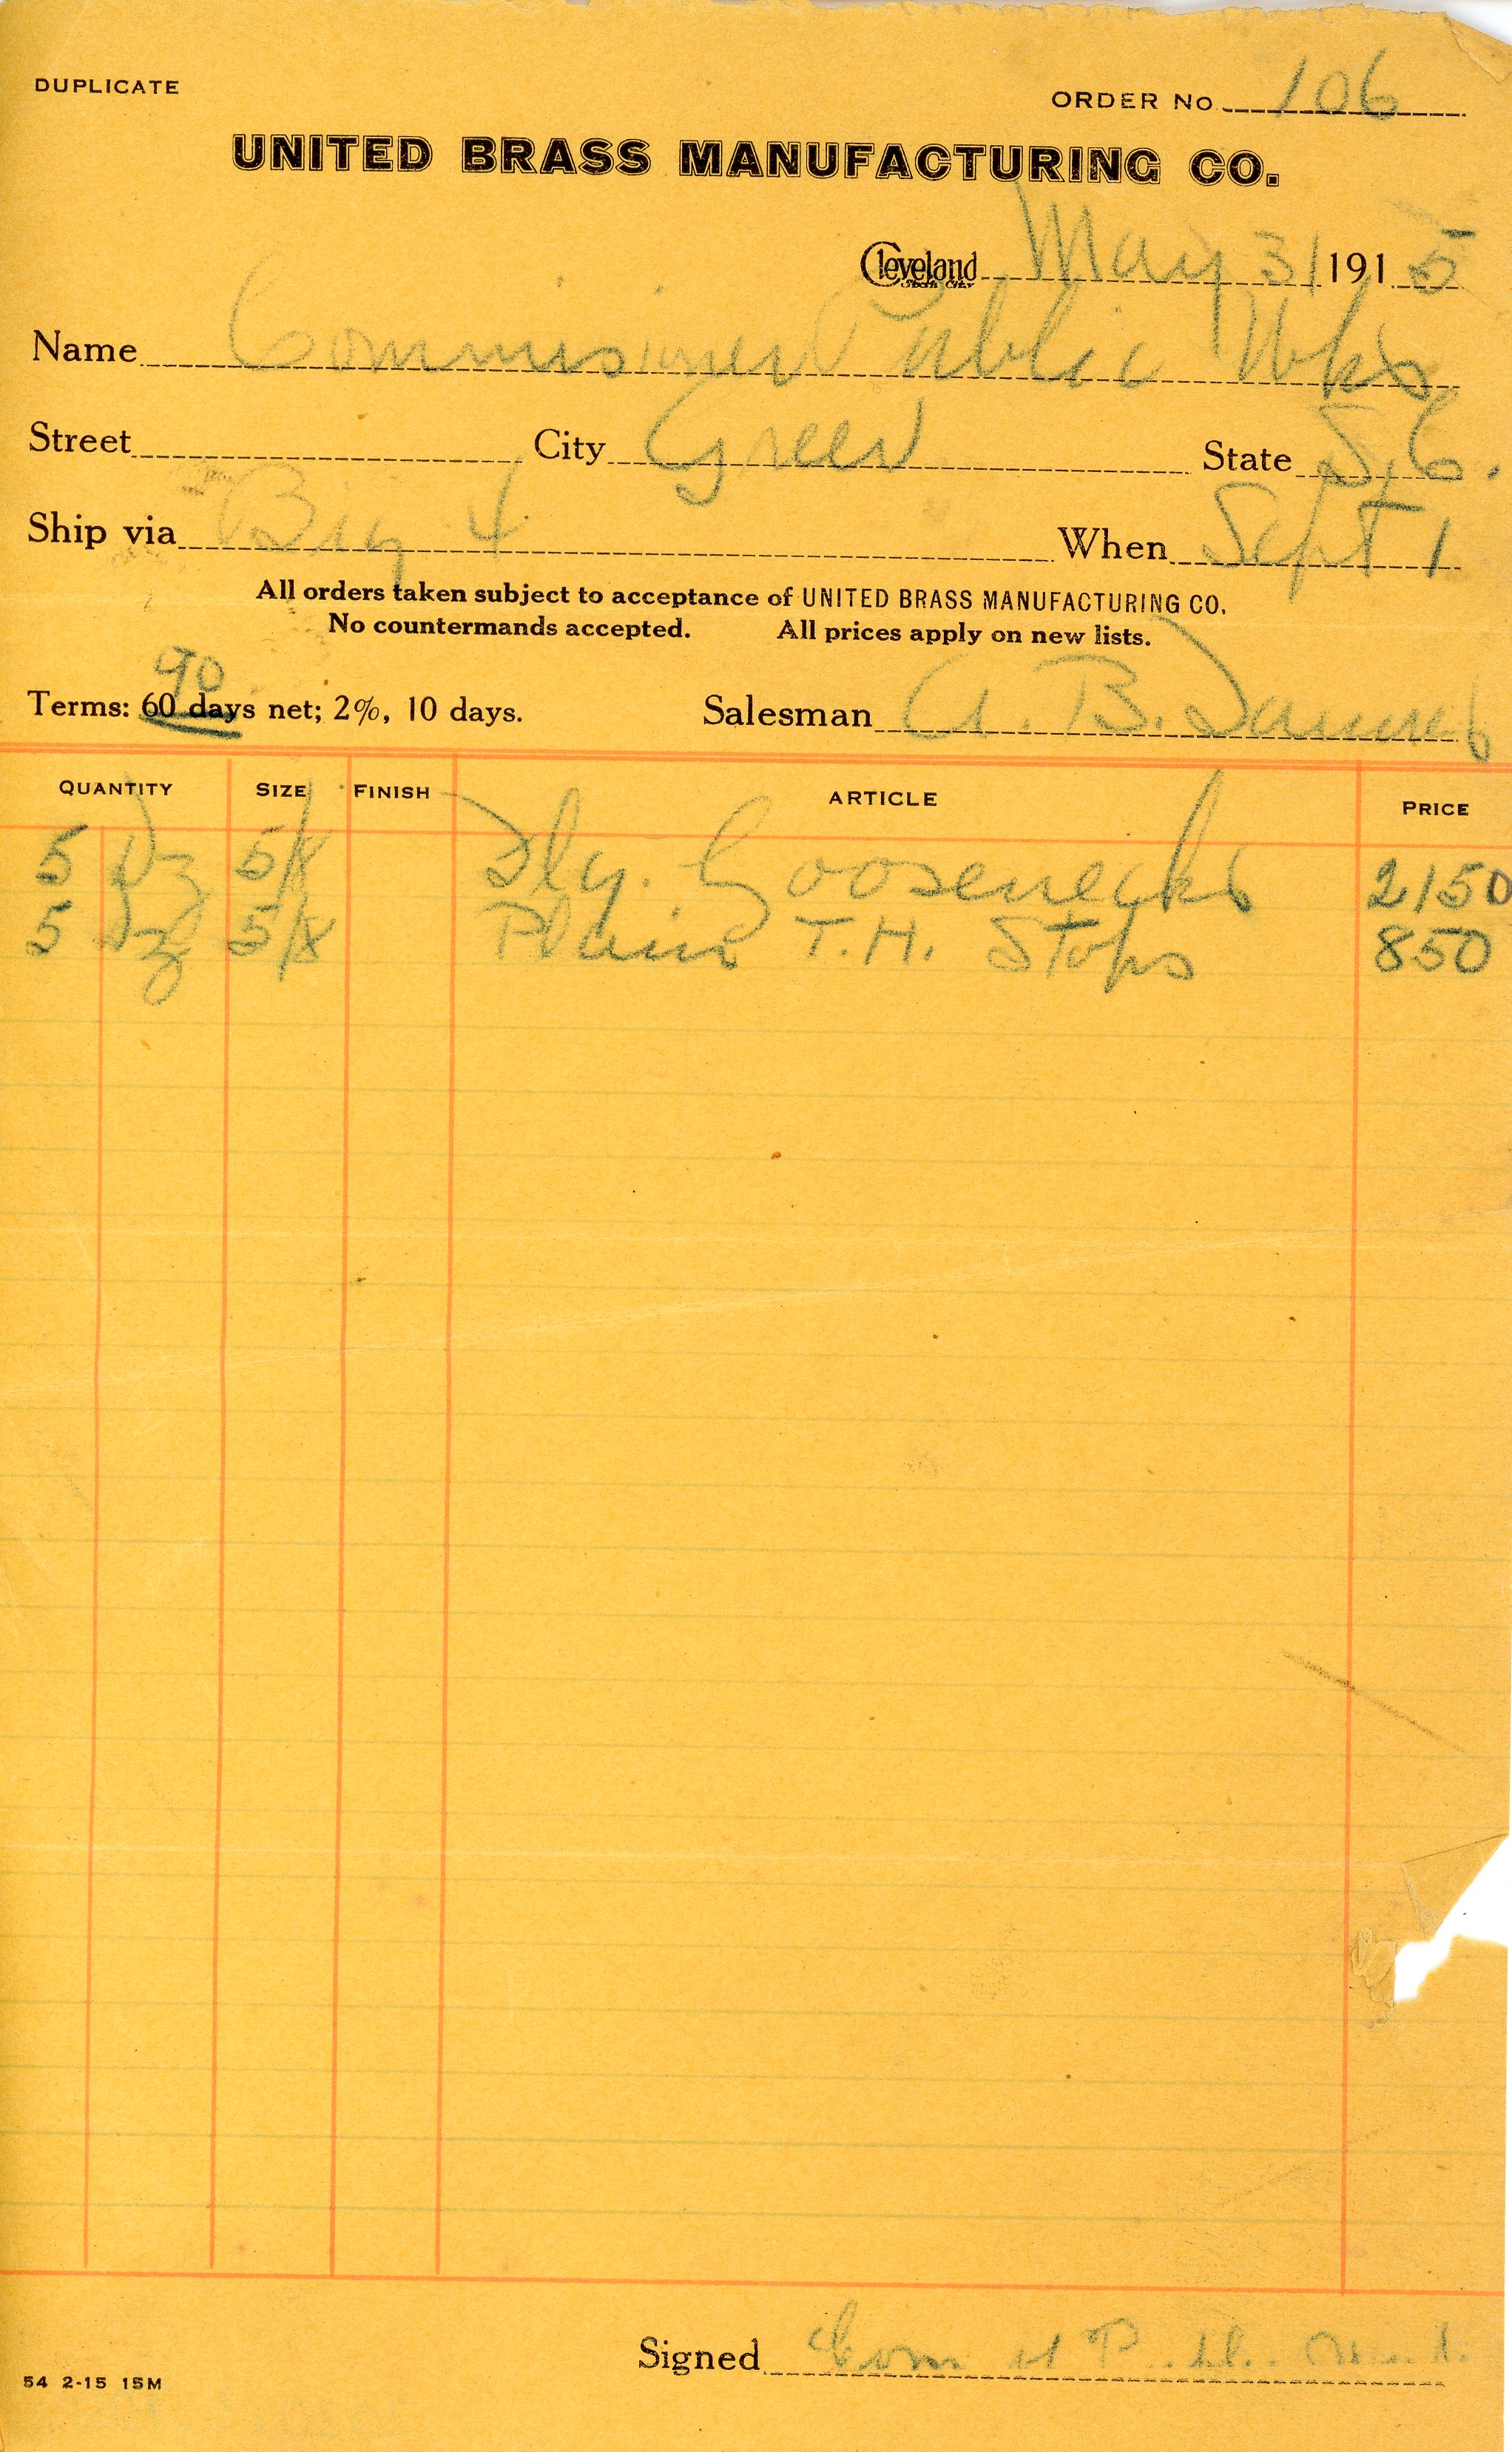 DUPLICATE
ORDER No 106
UNITED BRASS MANUFACTURING CO.
Cleveland May 31 1915
Name Commissioner Public Wks
Street City Greer State S.C.
Ship via Big 4 When Sept 1
All orders taken subject to acceptance of UNITED BRASS MANUFACTURING CO.
No countermands accepted. All prices apply on new lists.
90
Terms: 60 days net; 2%, 10 days. Salesman A. B.
QUANTITY SIZE FINISH ARTICLE PRICE
5 Dz 5/8 Goosenecks 2150
5 Dz 5/8 Plain T.H. Stops 850
Signed Com
54 2-15 15M